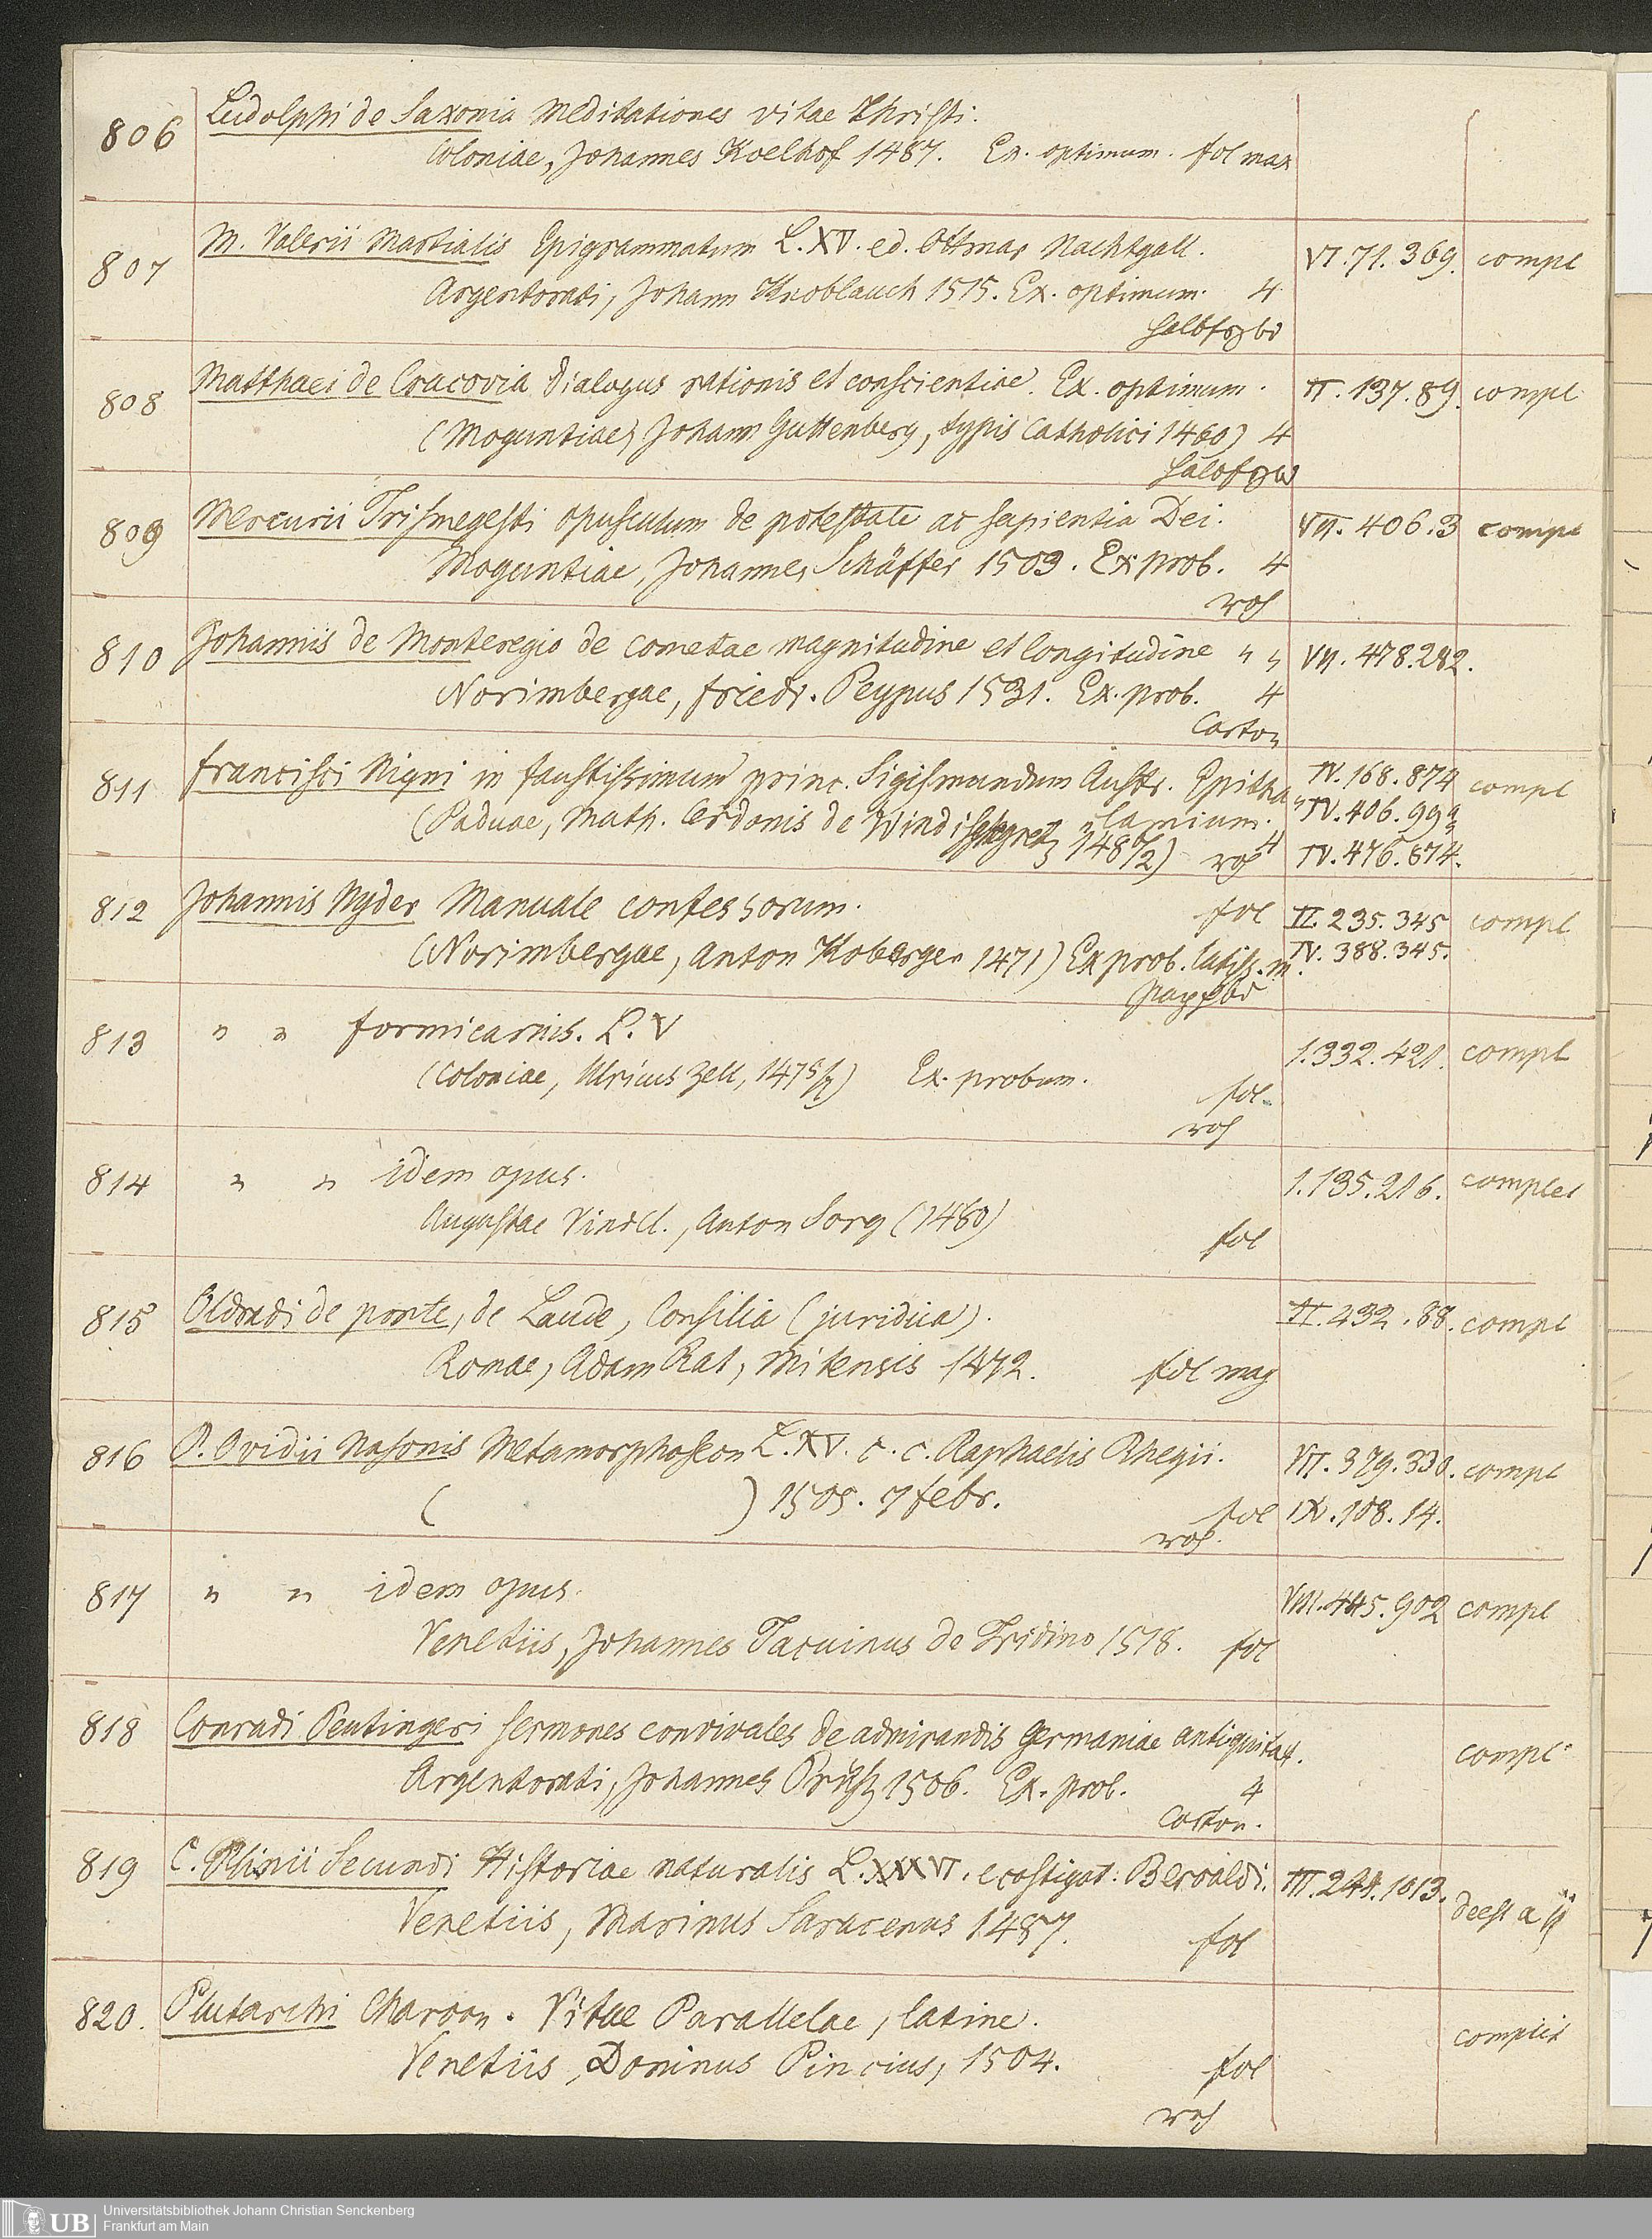 806 Ludolphi de Saxonia Meditationes vitae Christi.
Coloniae, Johannes Koelhof 1487. Ex. optimum. fol max
807 M. Valerii Martialis Epigrammatum L. XV. ed. Ottmar Nachtgall. VI. 71. 369. compl
Argentorati, Johann Knoblauch 1515. Ex. optimum. 4
Halbfrzbd
808 Matthaei de Cracovia Dialogus rationis et conscientiae. Ex. optimum. II. 137. 89. compl
(Moguntiae) Johann Guttenberg, typis Catholici 1460) 4
Halbfrzbd
809 Mercurii Trismegesti opusculum de potestate ac sapientia Dei. VII. 406. 3 compl
Moguntiae, Johannes Schäffer 1503. Ex prob. 4
roh
810 Johannis de Monteregio de cometae magnitudine et longitudine " " VII. 478. 282.
Norimbergae, Friedr. Peypus 1531. Ex. prob. 4
Carton
811 Francisci Nigri in faustissimum princ. Sigismundum Austr. Epitha IV. 168. 874 compl
" lamium. " IV. 406. 99
(Paduae, Math. Cerdonis de Windischgretz 148½) roh 4 IV. 476. 874.
812 Johannis Nyder Manuale confessorum. fol II. 235. 345 compl
(Norimbergae, Anton Koberger 1471) Ex prob. latiss. m. IV. 388. 345.
Pappbd
813 " " formicarius. L. V 1. 332. 421. compl
(Coloniae, Ulricus Zell, 1475/7) Ex. probum. fol.
roh
814 " " idem opus. 1. 135. 216. complet
Augustae Vindel., Anton Sorg (1480) fol
815 Oldradi de ponte, de Laude, Consilia (juridica). II. 232. 88. compl
Romae, Adam Rat, Mitensis 1472. fol mag
816 P. Ovidii Nasonis Metamorphoseon L. XV. c. c. Raphaelis Rhegii. VII. 379. 330. compl
( ) 1505. 7 febr. fol IX. 108. 14.
roh.
817 " " idem opus. VIII. 445. 902 compl
Venetiis, Johannes Tacuinus de Tridino 1518. fol
818 Conradi Peutingeri sermones convivales de admirandis Germaniae antiquitat. compl
Argentorati, Johannes Prüss 1506. Ex. prob. 4
Carton.
819 C. Plinii Secundi Historiae naturalis L. XXXVI. e castigat: Beroaldi. III. 244. 1013. deest a ij
Venetiis, Marinus Saracenus 1487. fol
820. Plutarchi Charoon. Vitae Parallelae, latine. complet
Venetiis, Doninus Pincius, 1504. fol
roh
UB Universitätsbibliothek Johann Christian Senckenberg
Frankfurt am Main